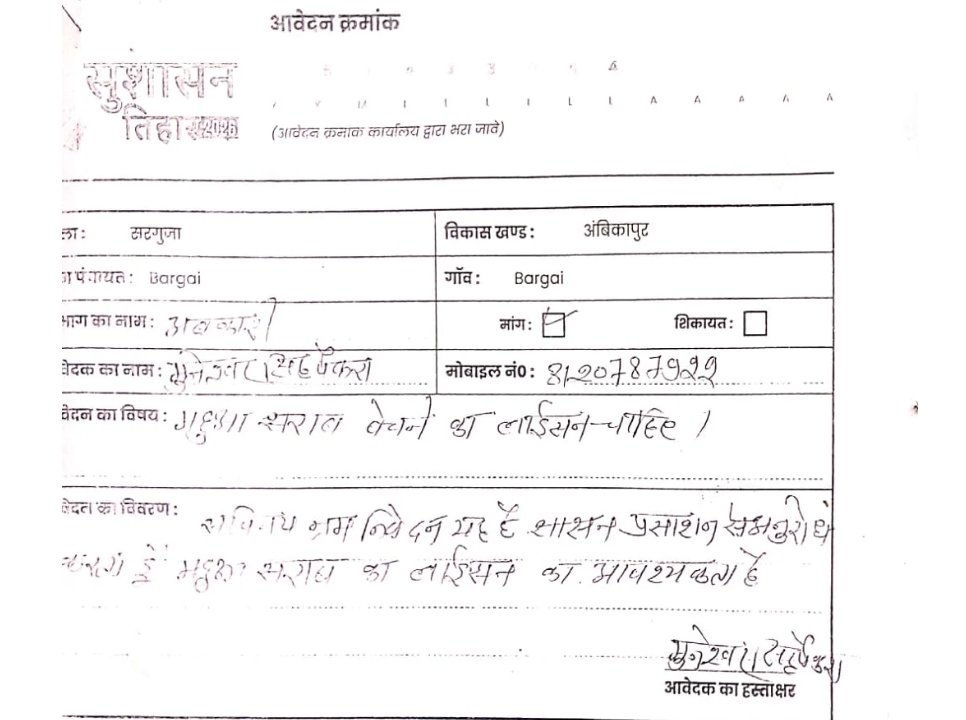 आवेदन क्रमांक
सुशासन
तिहार
(आवेदन क्रमांक कार्यालय द्वारा भरा जावे)
ला: सरगुजा विकास खण्ड: अंबिकापुर
पंचायत: Bargai गॉव: Bargai
भाग का नाम: आबकारी मांग: शिकायत:
वेदक का नाम: मुनेश्वर मोबाइल नं0: 8120787922
वेदन का विषय: महुआ सराब बेचने का लाईसन चाहिए।
वेदन का विवरण: सविनय नम्र निवेदन यह है शासन प्रसाशन से अनुरोध
करता हूँ महुआ सराब का लाईसन का आवश्यकता है
मुनेश्वर
आवेदक का हस्ताक्षर